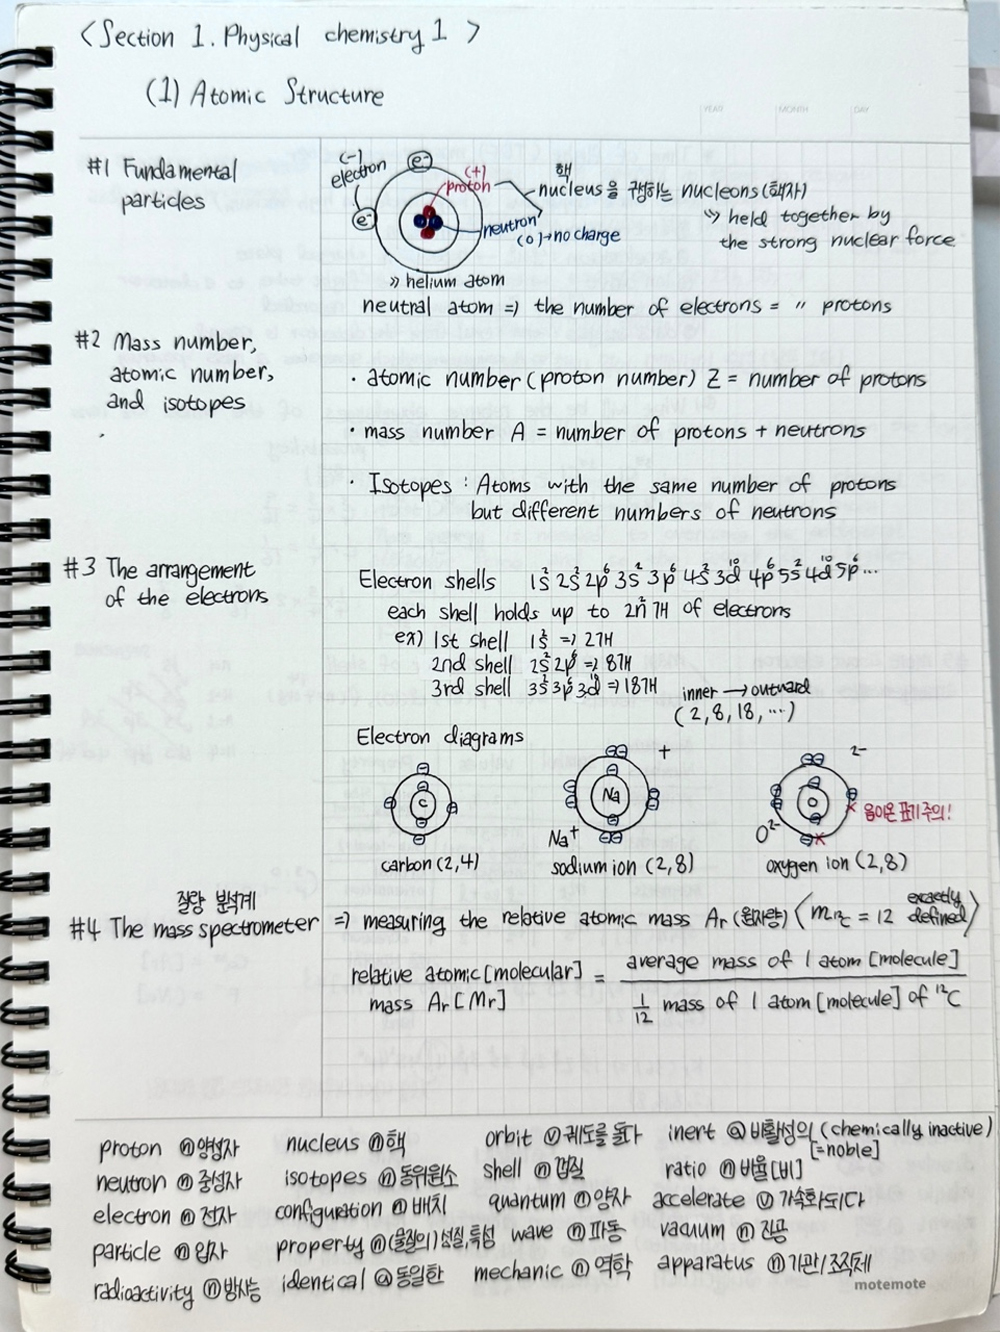 <Section 1. Physical chemistry 1>
(1) Atomic Structure
YEAR MONTH DAY
#1 Fundamental
particles
(-)
electron
e⁻
e⁻
(+)
proton
neutron
(0)→no charge
핵
nucleus을 구성하는 nucleons(핵자)
↳ held together by
the strong nuclear force
» helium atom
neutral atom => the number of electrons = 〃 protons
#2 Mass number,
atomic number,
and isotopes
· atomic number (proton number) Z = number of protons
· mass number A = number of protons + neutrons
· Isotopes : Atoms with the same number of protons
but different numbers of neutrons
#3 The arrangement
of the electrons
Electron shells 1s² 2s² 2p⁶ 3s² 3p⁶ 4s² 3d¹⁰ 4p⁶ 5s² 4d¹⁰ 5p⁶...
each shell holds up to 2n²개 of electrons
ex) 1st shell 1s² => 2개
2nd shell 2s² 2p⁶ => 8개
3rd shell 3s² 3p⁶ 3d¹⁰ => 18개
inner → outward
(2, 8, 18, ...)
Electron diagrams
C
carbon (2,4)
Na
+
Na⁺
sodium ion (2,8)
O
2-
O²⁻
음이온 표기 주의!
oxygen ion (2,8)
질량 분석계
#4 The mass spectrometer => measuring the relative atomic mass Ar (원자량) <m¹²C = 12 exactly defined>
relative atomic [molecular]
mass Ar [Mr]
=
average mass of 1 atom [molecule]
1/12 mass of 1 atom [molecule] of ¹²C
proton ⓝ 양성자
neutron ⓝ 중성자
electron ⓝ 전자
particle ⓝ 입자
radioactivity ⓝ 방사능
nucleus ⓝ 핵
isotopes ⓝ 동위원소
configuration ⓝ 배치
property ⓝ (물질의) 성질, 특성
identical ⓐ 동일한
orbit ⓥ 궤도를 돌다
shell ⓝ 껍질
quantum ⓝ 양자
wave ⓝ 파동
mechanic ⓝ 역학
inert ⓐ 비활성의 (chemically inactive)
[=noble]
ratio ⓝ 비율[비]
accelerate ⓥ 가속화되다
vacuum ⓝ 진공
apparatus ⓝ 기관/조직체
motemote